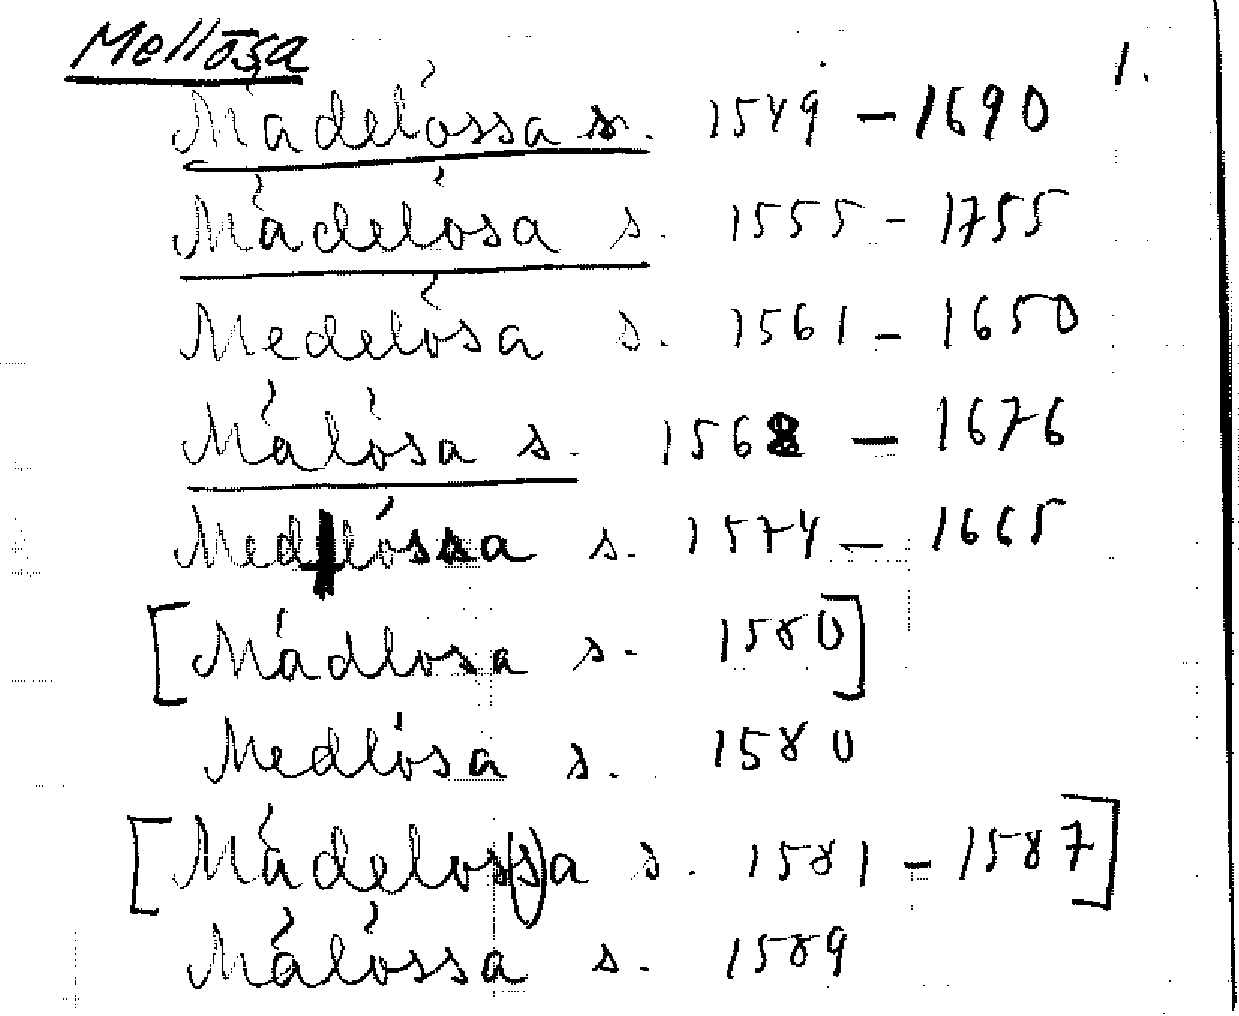 Mellösa
1.
Mädelössa s. 1549 – 1690
Mädelösa s. 1555 – 1755
Medelösa s. 1561 – 1650
Mälösa s. 1568 – 1676
Medlössa s. 1574 – 1665
[Mädlosa s. 1580]
Medlösa s. 1580
[Mädelos(s)a s. 1581 – 1587]
Mälössa s. 1589